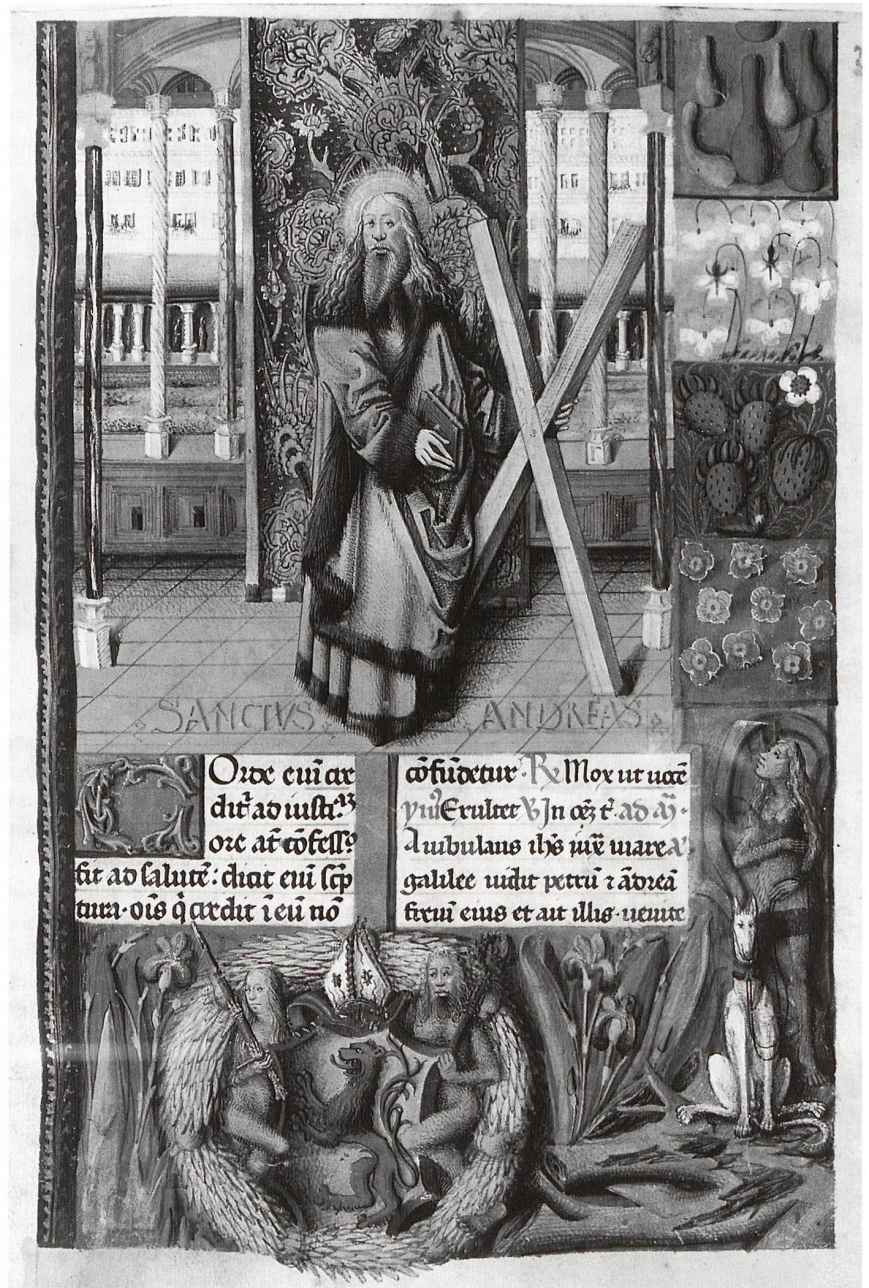 SANCTVS ANDREAS
Corde eni̅ cre
dit̃ ad iusti
ore at̃ co̅fess
fit ad salute̅: dicit eni̅ sc̅p
tura· oi̅s q̇ credit i̅ eu̅ no̅
co̅fu̅detur· R Mox ut uoce̅
Exultet V In
Ambulans ih̅s iux̅ mare
galilee uidit petru̅ ⁊ a̅drea̅
frem̅ eius et ait illis· uenite